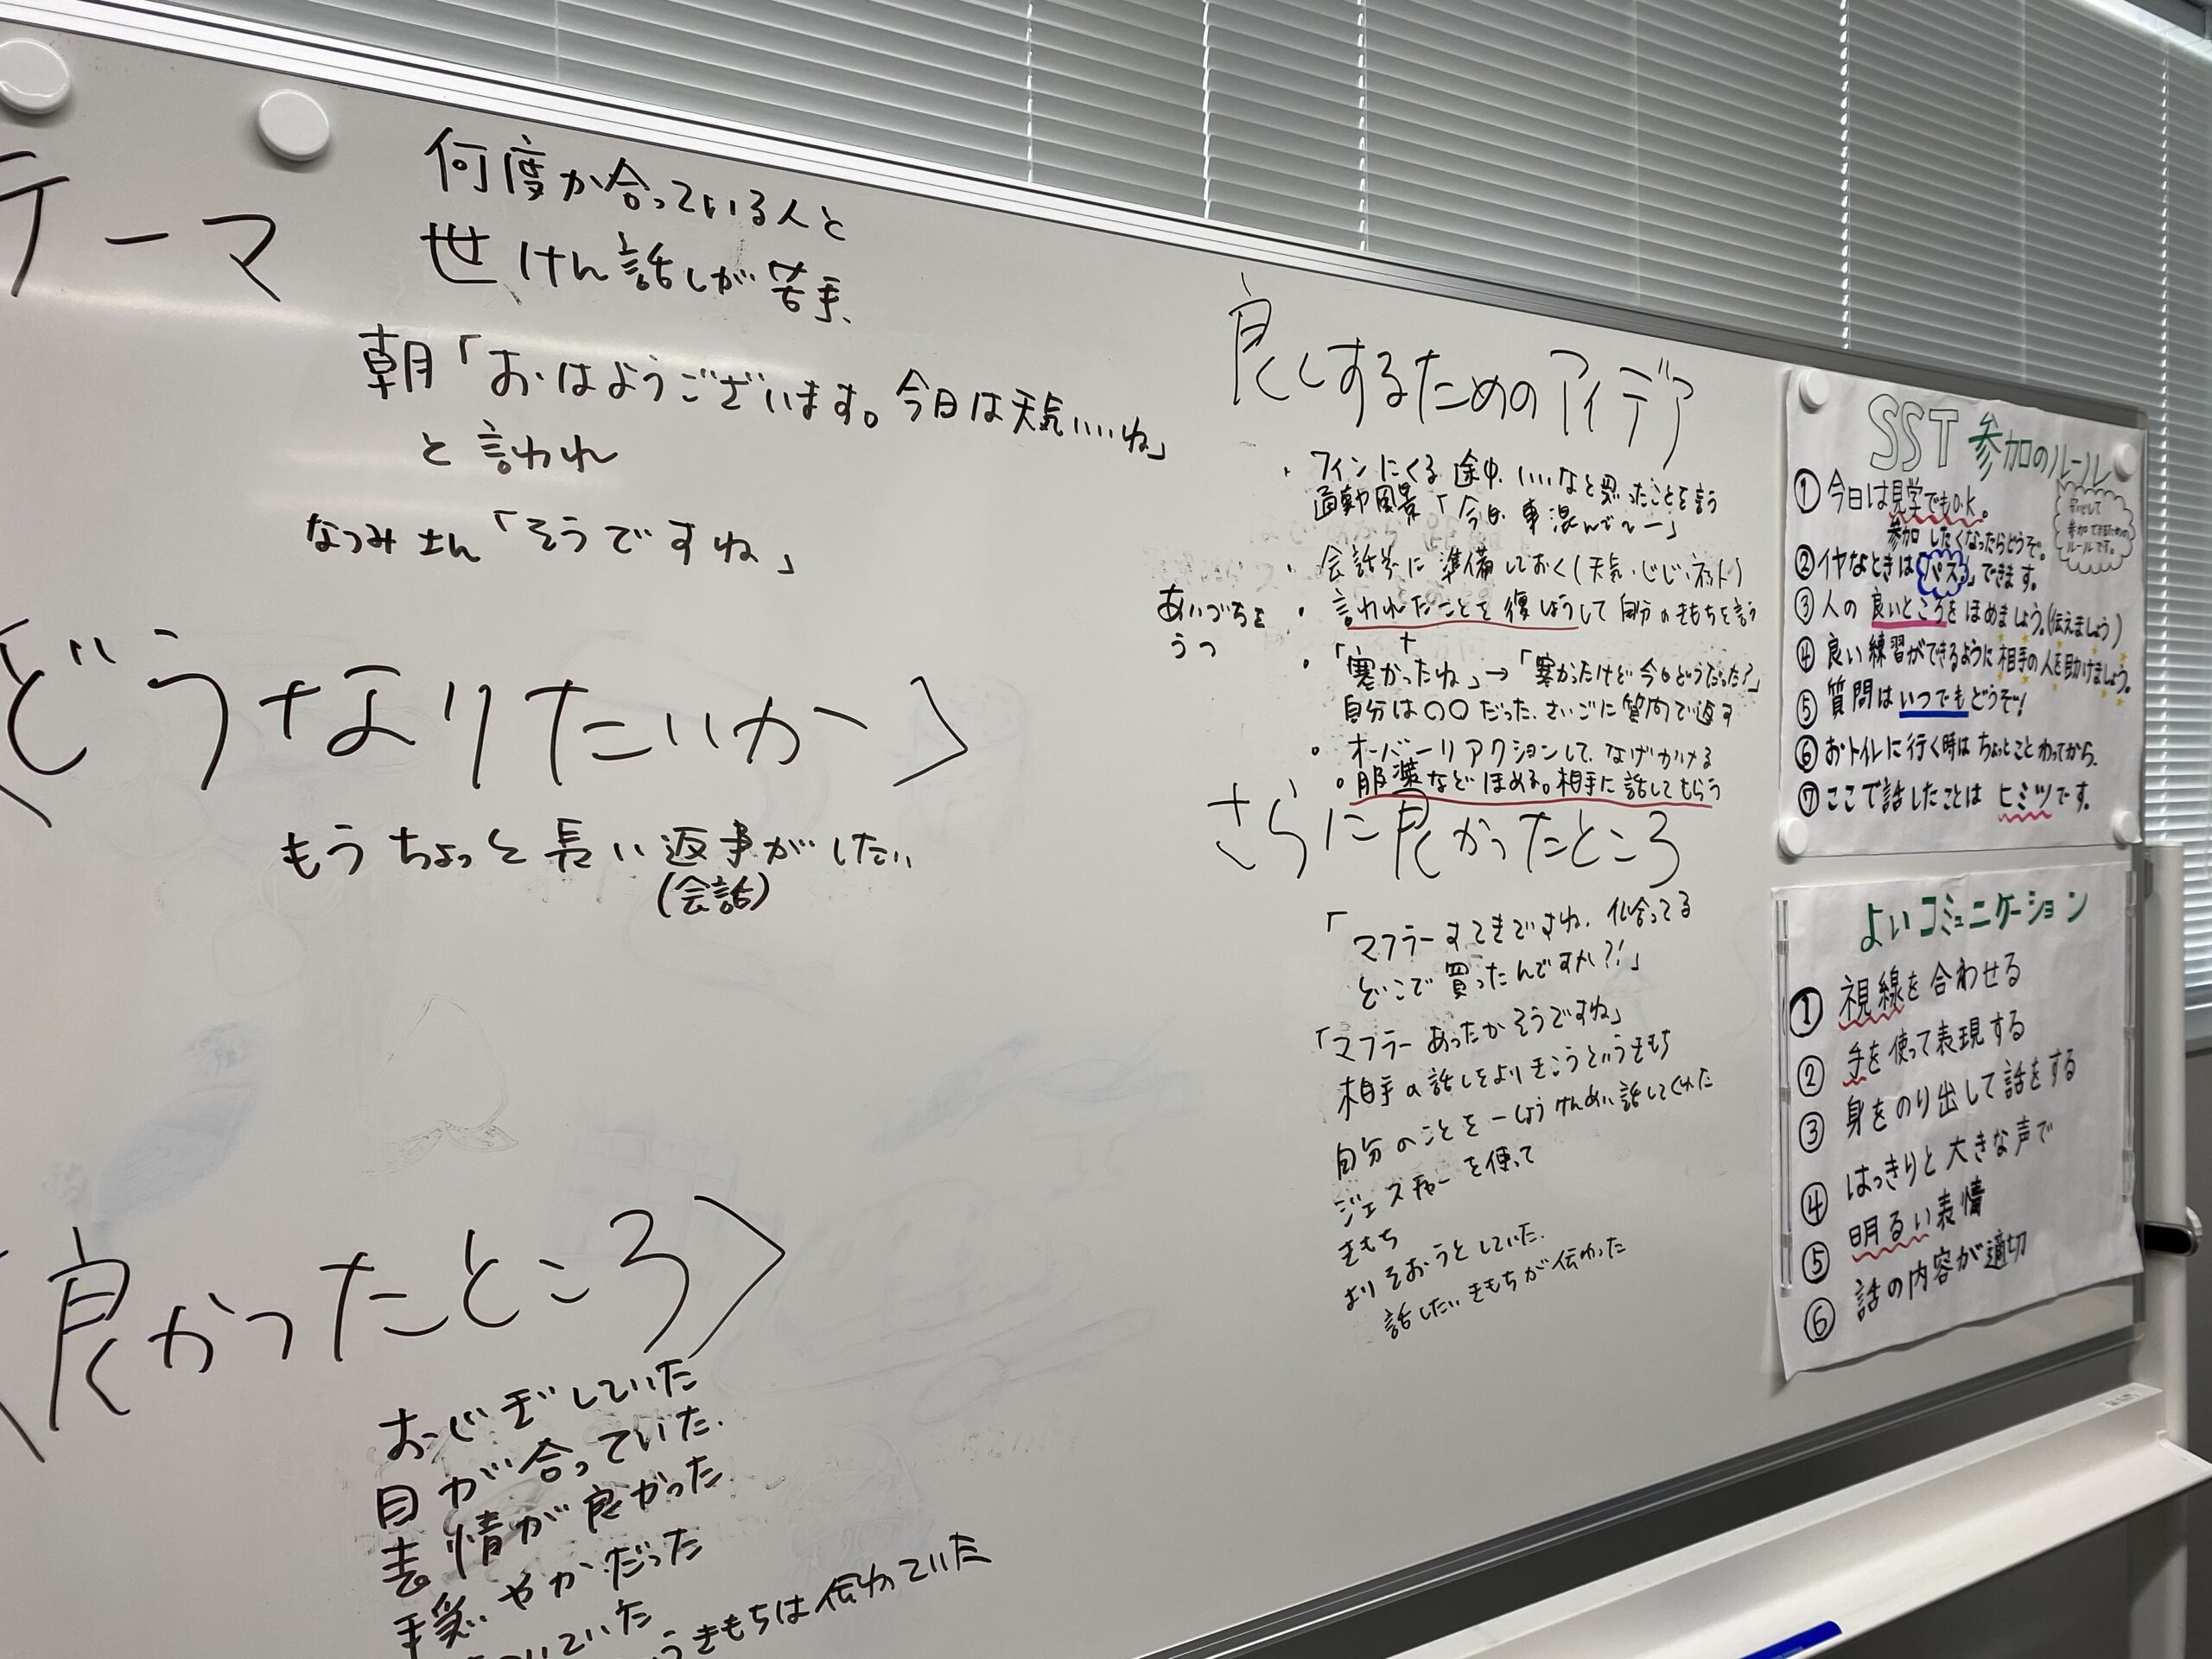 テーマ
何度か合っている人と
世けん話しが苦手、
朝「おはようございます。今日は天気いいね」
と言われ
なつみさん「そうですね」
どうなりたいか〉
もうちょっと長い返事がしたい
(会話)
〈良かったところ〉
おじぎしていた
目が合っていた.
表情が良かった
穏やかだった
ていた
うきもちは伝わっていた
良くするためのアイデア
・フィンにくる途中、いいなと思ったことを言う
通勤風景「今日、車混んで〜ー」
・会話各に準備しておく(天気・じじ・ネット)
あいづちを
うつ
・言われたことを復しょうして自分のきもちを言う
+
・「寒かったね」→「寒かったけど今日どうだった?」
自分は〇〇だった、さいごに質問で返す
・オーバーリアクションして、なげかける
・服装などほめる。相手に話してもらう
さらに良かったところ
「マフラーすてきですね、似合ってる
どこで買ったんですか?!」
「マフラーあったかそうですね」
相手の話しをよりきこうというきもち
自分のことを一しょうけんめい話してくれた
ジェスチャーを使って
きもち
よりそおうとしていた.
話したいきもちが伝わった
SST参加のルール
①今日は見学でもO.K。
参加したくなったらどうぞ。
安心して
参加できるための
ルールです。
②イヤなときは「パス!」できます。
③人の良いところをほめましょう。(伝えましょう)
④良い練習ができるように相手の人を助けましょう。
⑤質問はいつでもどうぞ!
⑥おトイレに行く時はちょっとことわってから。
⑦ここで話したことはヒミツです。
よいコミュニケーション
①視線を合わせる
②手を使って表現する
③身をのり出して話をする
④はっきりと大きな声で
⑤明るい表情
⑥話の内容が適切